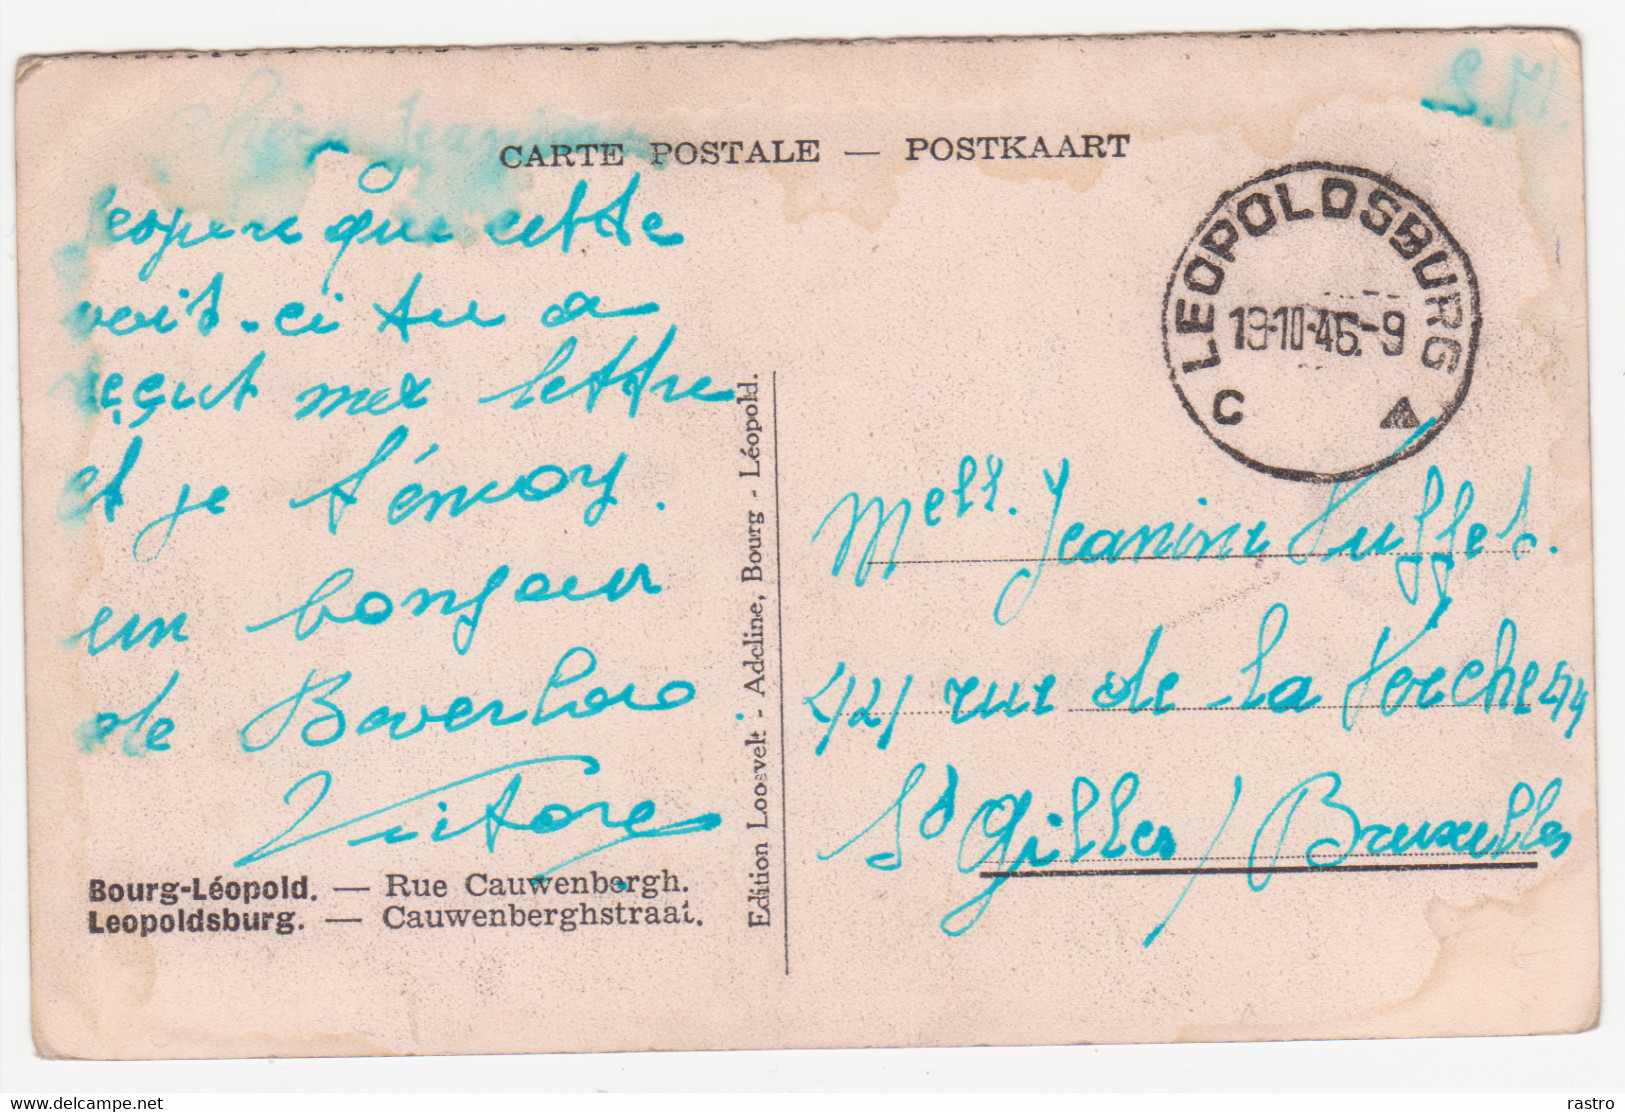 S.M.
Chère Jeanine
CARTE POSTALE — POSTKAART
J'espere que cette
voit-ci tu a
reçut mes lettre
et je t'envoy.
un bonjour
de Beverloo
Victore
Bourg-Léopold. — Rue Cauwenbergh.
Leopoldsburg. — Cauwenberghstraat.
Edition Loosvelt - Adeline, Bourg - Léopold.
LEOPOLDSBURG
19-10-46.-9
C
Mell. Jeanine
rue de la
St Gilles / Bruxelles
www.delcampe.net
rastro